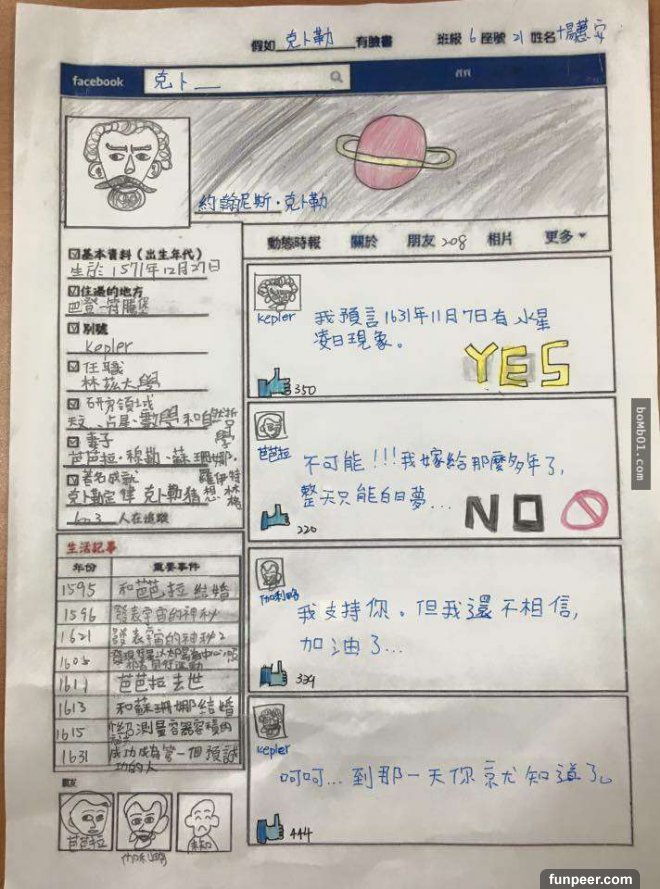 假如 克卜勒 有臉書 班級 6 座號 21 姓名
facebook 克卜
約翰尼斯·克卜勒
動態時報 關於 朋友 208 相片 更多
基本資料（出生年代）
生於1571年12月27日
住過的地方
巴登-符騰堡
別號
kepler
任職
林茲大學
研究領域
天文、占星、數學和自然哲學
妻子
芭芭拉·穆勒、蘇珊娜·羅伊特林格
著名成就
克卜勒定律 克卜勒猜想
603 人在追蹤
生活記事
年份 重要事件
1595 和芭芭拉結婚
1596 發表宇宙的神秘
1621 發表宇宙的神秘2
1605
1611 芭芭拉去世
1613 和蘇珊娜結婚
1615 介紹測量容器容積的
1631 成功成為第一個預測成功的人
朋友
芭芭拉
伽利略
kepler
我預言1631年11月7日有水星
凌日現象。
YES
350
芭芭拉
不可能!!!我嫁給那麼多年了,
整天只能白日夢...
NO
220
伽利略
我支持你。但我還不相信,
加油了...
334
kepler
呵呵...到那一天你就知道了。
444
bomb01.com
funpeer.com